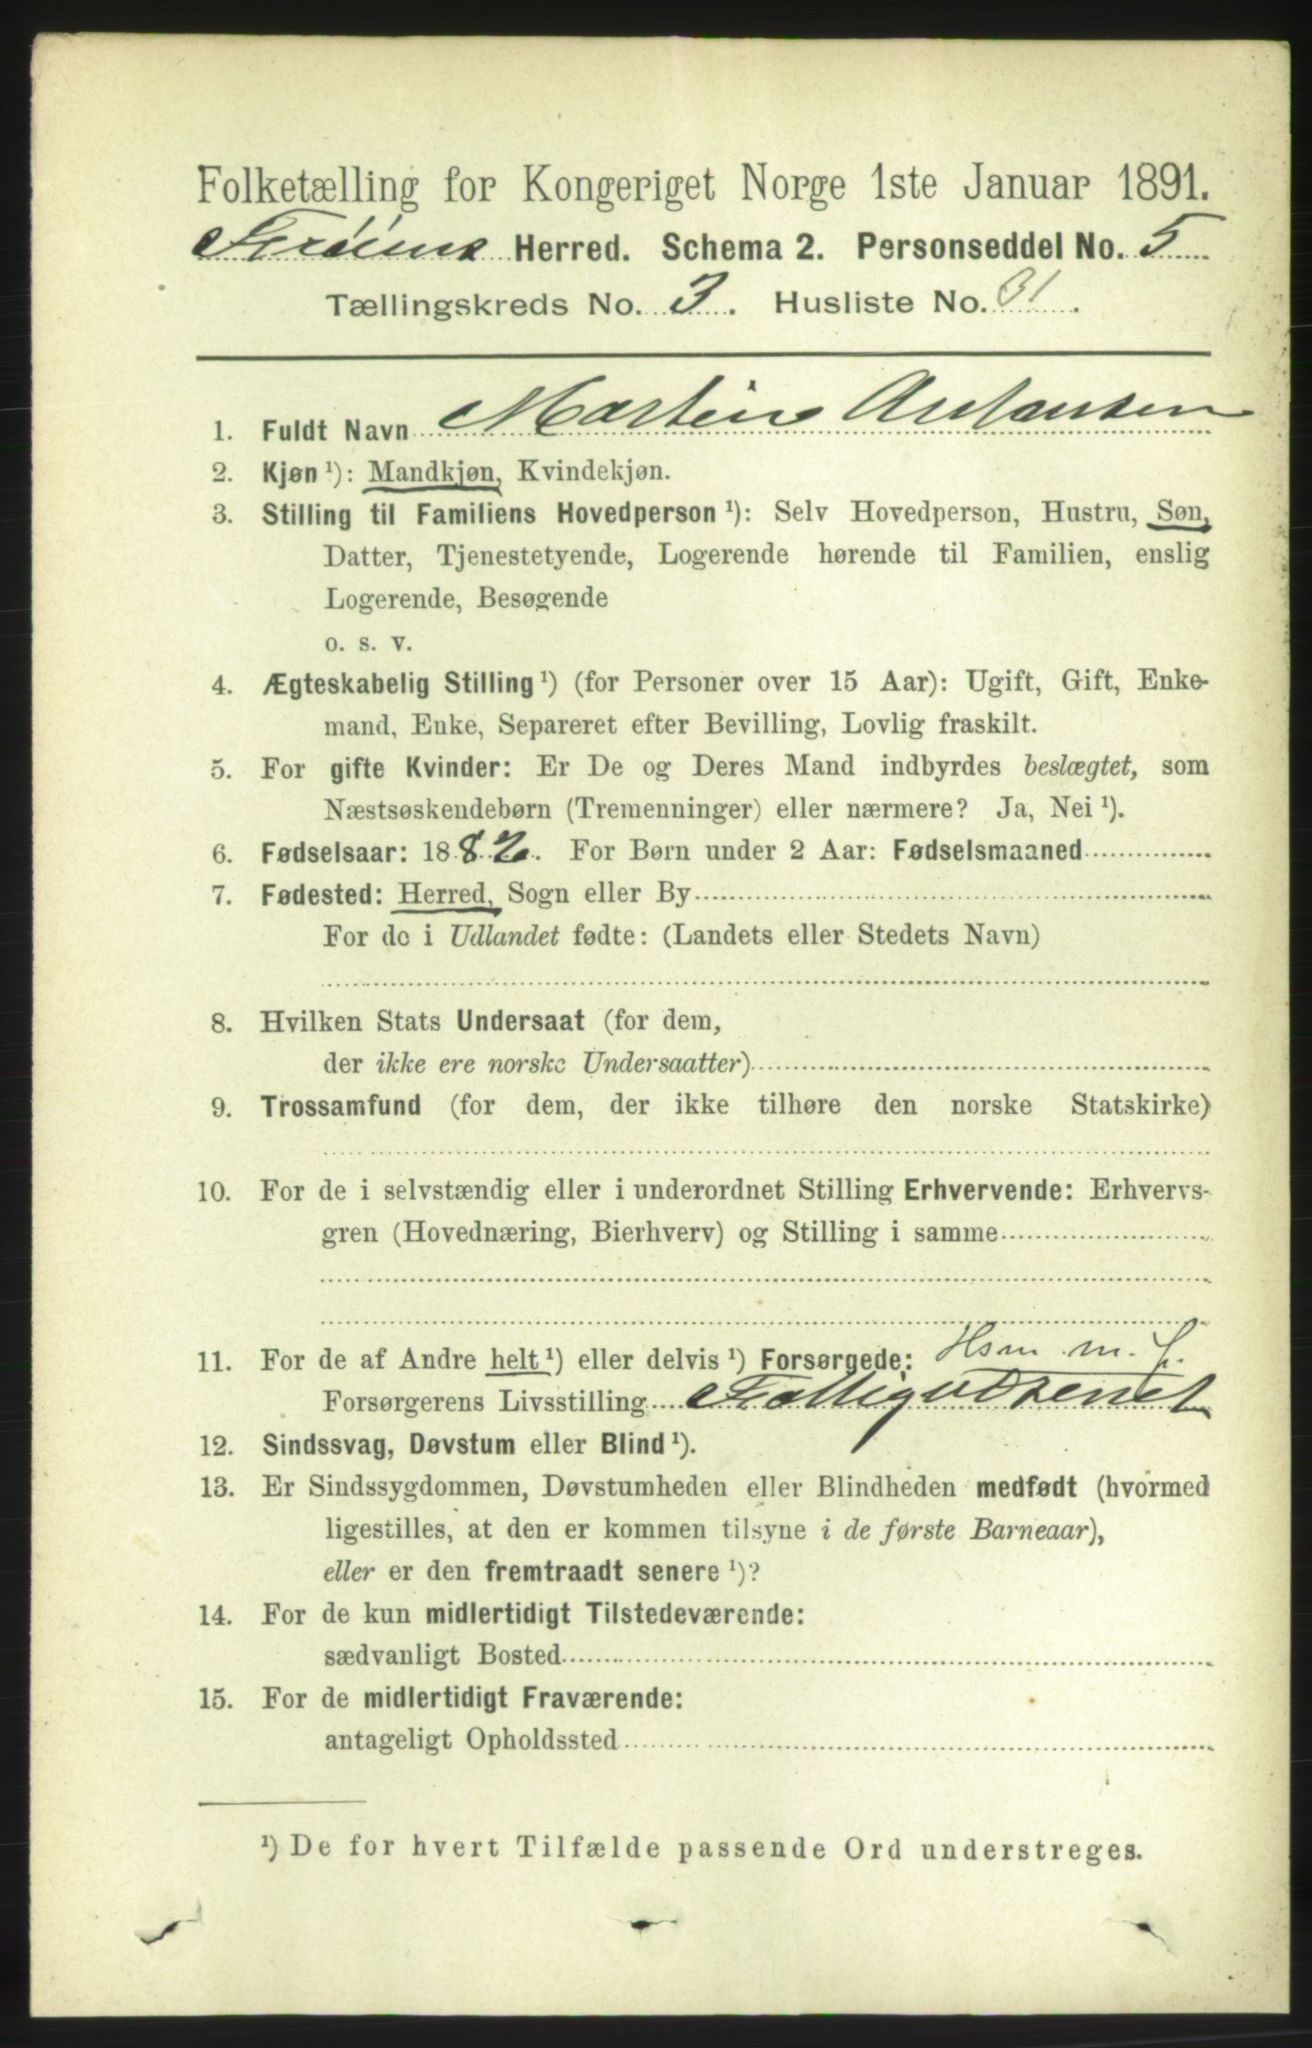 Folketælling for Kongeriget Norge 1ste Januar 1891.
Herred. Schema 2. Personseddel No. 5
Tællingskreds No. 3. Husliste No. 31.
1. Fuldt Navn Martin Antonsen
2. Kjøn ¹): Mandkjøn, Kvindekjøn.
3. Stilling til Familiens Hovedperson ¹): Selv Hovedperson, Hustru, Søn,
Datter, Tjenestetyende, Logerende hørende til Familien, enslig
Logerende, Besøgende
o. s. v.
4. Ægteskabelig Stilling ¹) (for Personer over 15 Aar): Ugift, Gift, Enke-
mand, Enke, Separeret efter Bevilling, Lovlig fraskilt.
5. For gifte Kvinder: Er De og Deres Mand indbyrdes beslægtet, som
Næstsøskendebørn (Tremenninger) eller nærmere? Ja, Nei ¹).
6. Fødselsaar: 1882. For Børn under 2 Aar: Fødselsmaaned
7. Fødested: Herred, Sogn eller By
For de i Udlandet fødte: (Landets eller Stedets Navn)
8. Hvilken Stats Undersaat (for dem,
der ikke ere norske Undersaatter)
9. Trossamfund (for dem, der ikke tilhøre den norske Statskirke)
10. For de i selvstændig eller i underordnet Stilling Erhvervende: Erhvervs-
gren (Hovednæring, Bierhverv) og Stilling i samme
11. For de af Andre helt ¹) eller delvis ¹) Forsørgede: Hsm m. J.
Forsørgerens Livsstilling
12. Sindssvag, Døvstum eller Blind ¹).
13. Er Sindssygdommen, Døvstumheden eller Blindheden medfødt (hvormed
ligestilles, at den er kommen tilsyne i de første Barneaar),
eller er den fremtraadt senere ¹)?
14. For de kun midlertidigt Tilstedeværende:
sædvanligt Bosted
15. For de midlertidigt Fraværende:
antageligt Opholdssted
¹) De for hvert Tilfælde passende Ord understreges.